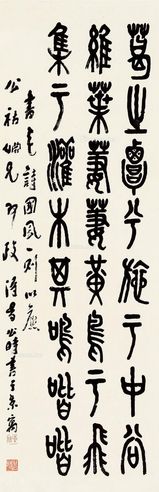 葛之覃兮施于中谷
維葉萋萋黃鳥于飛
集于灌木其鳴喈喈
書毛詩國風一則以應
公祜姻兄即政